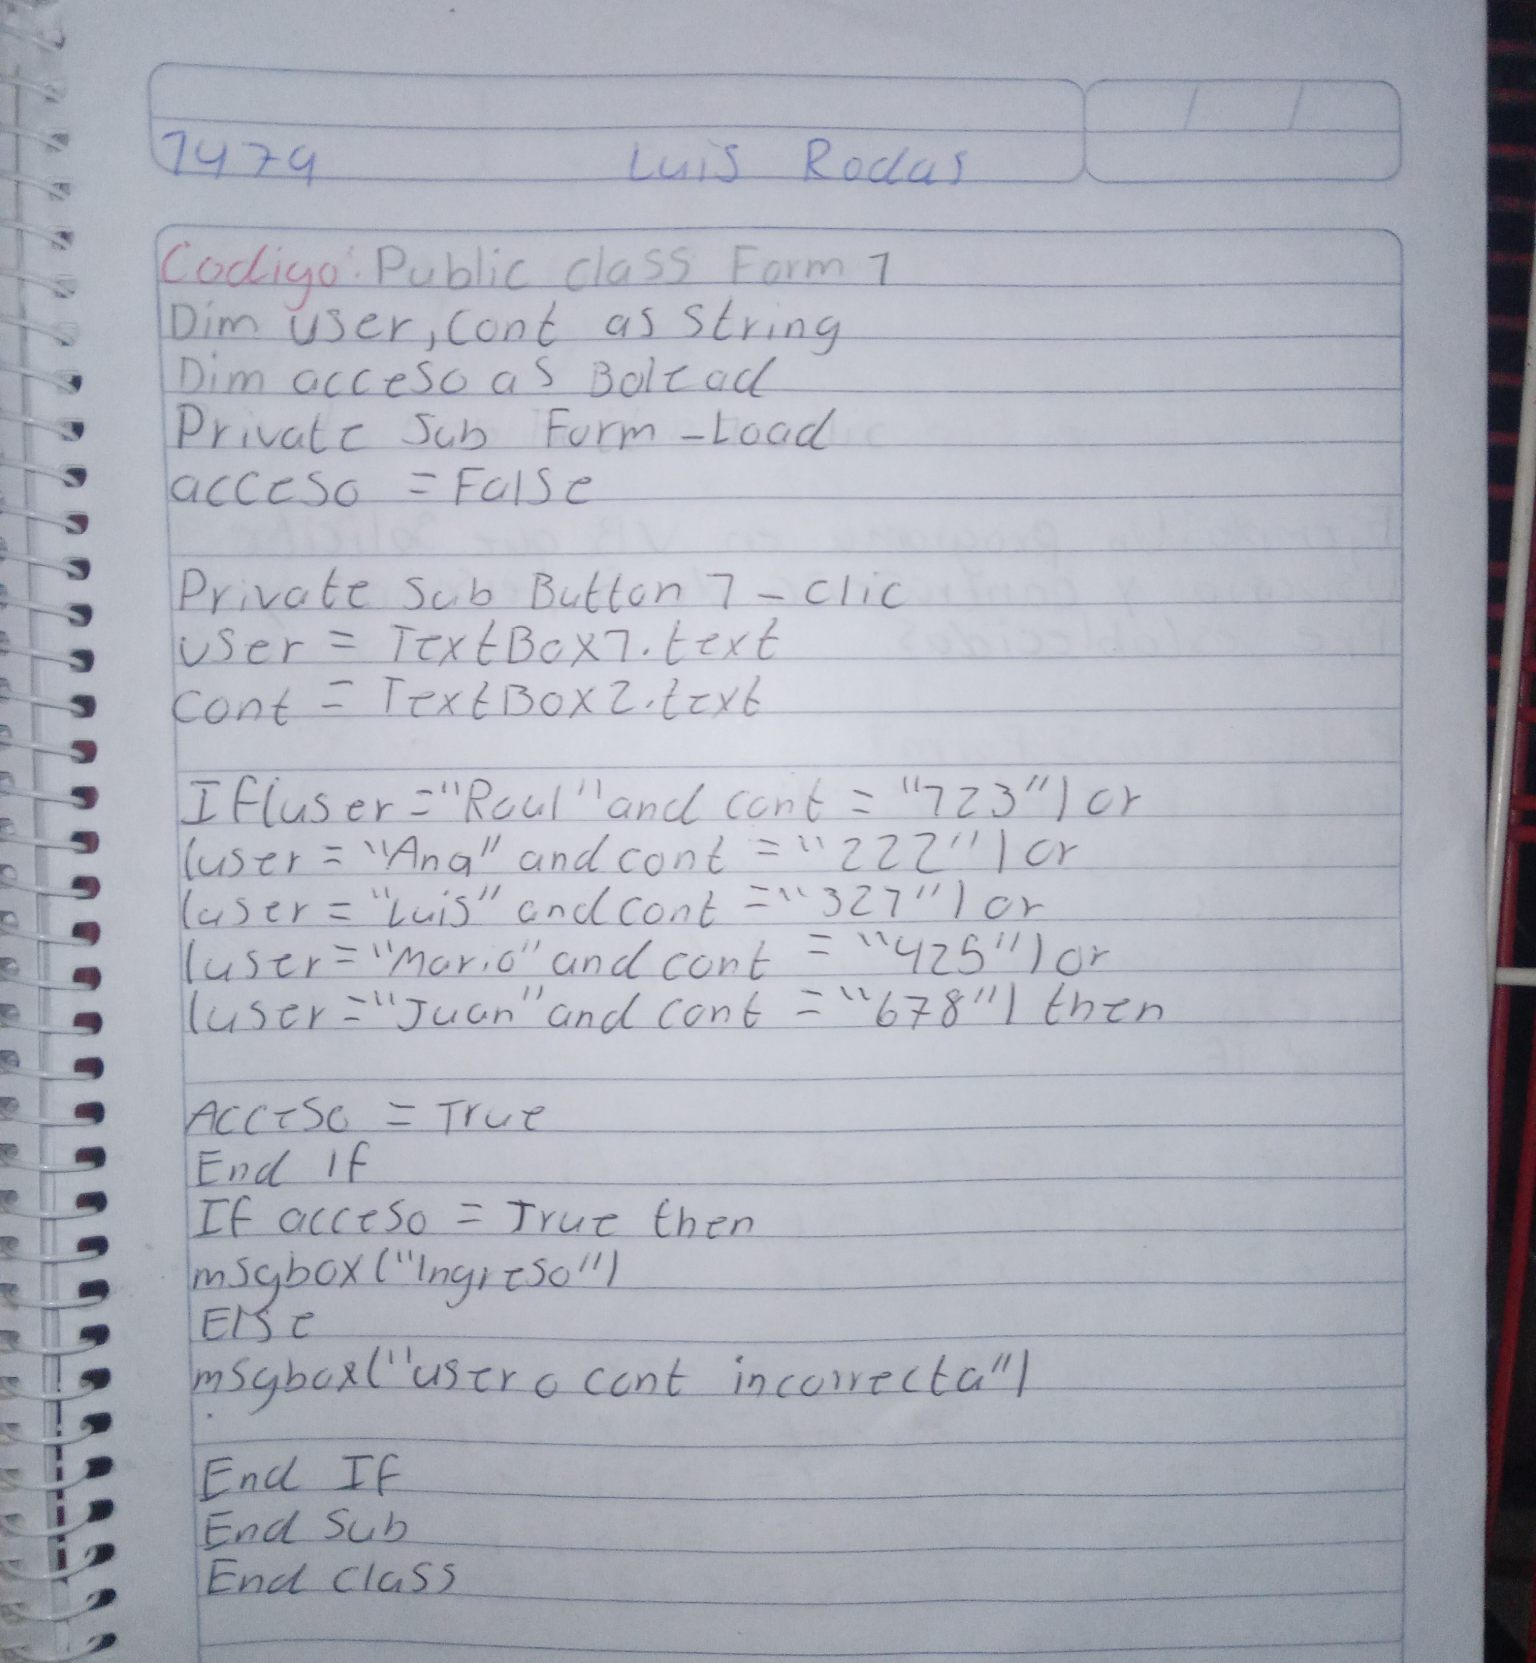 1479 Luis Rodas
Codigo: Public class Form 1
Dim user, cont as string
Dim acceso as Bolead
Private Sub Form - Load
acceso = False
Private Sub Button 1 - clic
user = TextBox1.text
cont = TextBox2.text
If (user = "Raul" and cont = "123") or
(user = "Ana" and cont = "222") or
(user = "Luis" and cont = "321") or
(user = "Mario" and cont = "425") or
(user = "Juan" and cont = "678") then
Acceso = True
End if
If acceso = True then
msgbox("Ingreso")
Else
msgbox("user o cont incorrecta")
End If
End Sub
End class